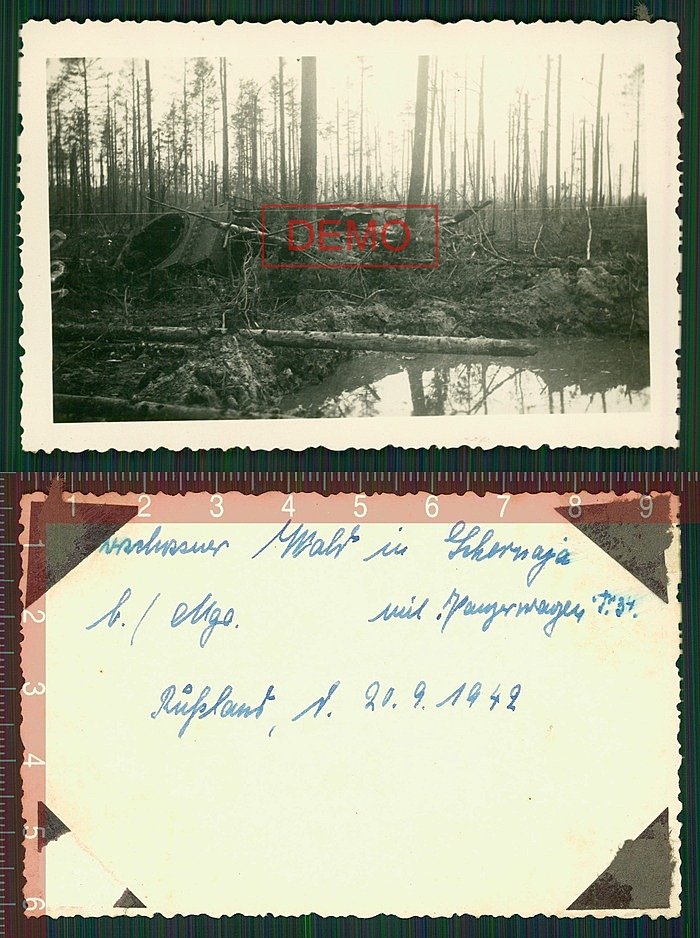 DEMO
1 2 3 4 5 6 7 8 9
zerschossner Wald in Schornaja
b./ Mga. mit Panzerwagen "T. 34.
Rußland, d. 20. 9. 1942
1
2
3
4
5
6